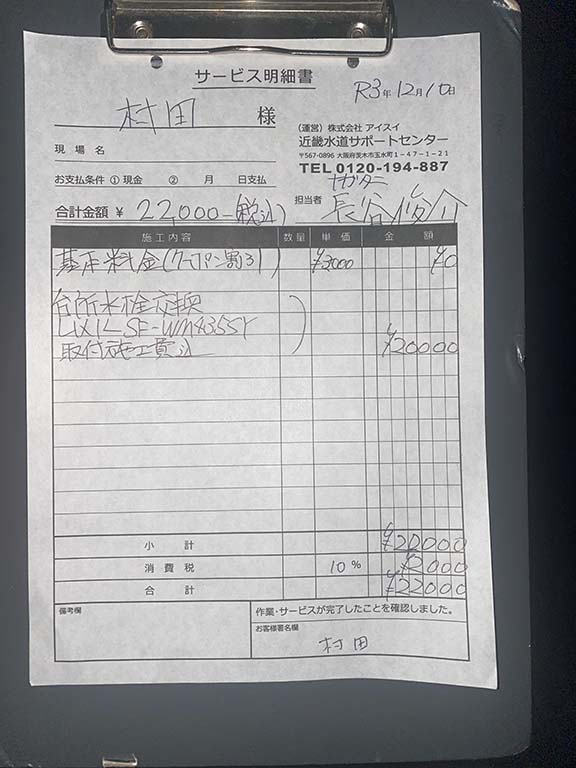 サービス明細書
R3年12月10日
村田 様
(運営) 株式会社 アイスイ
近畿水道サポートセンター
〒567-0896 大阪府茨木市玉水町1-47-1-21
TEL 0120-194-887
現場名
お支払条件 ① 現金 ② 月 日支払
担当者 長谷俊介
合計金額 ¥ 22,000-(税込)
施工内容 数量 単価 金額
基本料金(クーポン割引) ¥3000 ¥0
台所水栓交換
LIXIL SF-WM435SY
取付施工費込 ¥20000
小計 ¥20000
消費税 10% ¥2000
合計 ¥22000
備考欄
作業・サービスが完了したことを確認しました。
お客様署名欄
村田